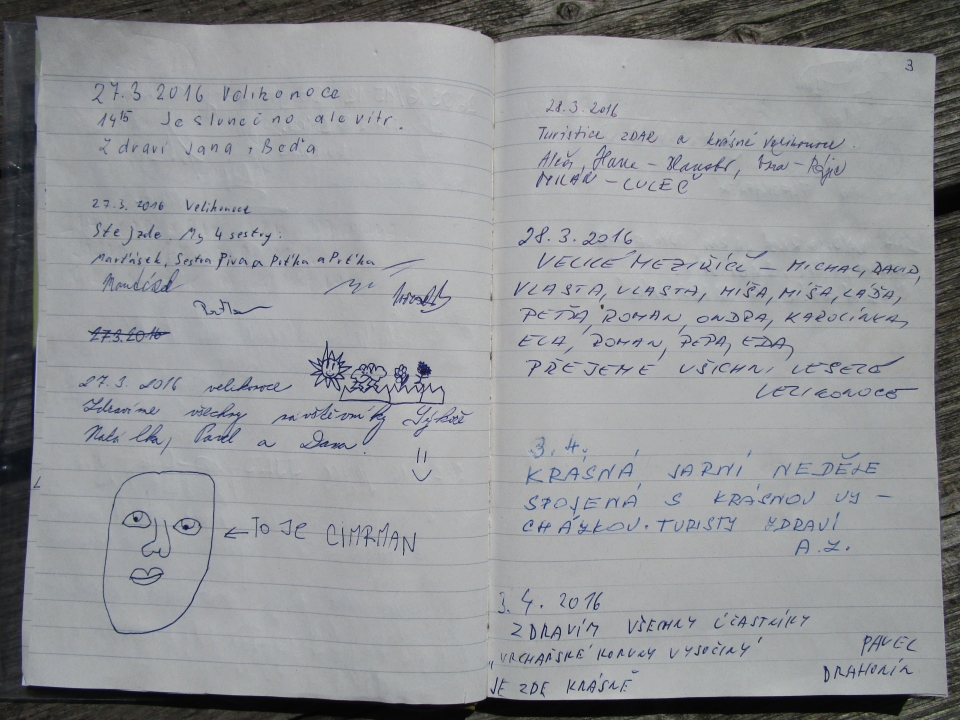 27.3 2016 Velikonoce
14 15 Je slunečno ale vítr.
Zdraví Jana + Beďa
27.3. 2016 Velikonoce
Ste jzde. My 4 sestry.
Marťásek, Sestra Piva a Prťka a Prťka
27.3.2016
27.3. 2016 velikonoce
Zdravíme všechny návštěvníky Sýkoře
Natálka, Pavel a Dana!
← TO JE CIMRMAN
3
28.3.2016
Turistice ZDAR a krásné Velikonoce.
Aleš, Hana -
MILAN - LULEČ
28.3.2016
VELKÉ MEZIŘÍČÍ - MICHAL, DAVID,
VLASTA, VLASTA, MÍŠA, MÍŠA, LÁĎA,
PEŤA, ROMAN, ONDRA, KAROLÍNKA,
ELA, ROMAN, PEPA, EDA,
PŘEJEME VŠICHNI VESELÉ
VELIKONOCE
3.4.
KRÁSNÁ JARNÍ NEDĚLE
SPOJENÁ S KRÁSNOU VY -
CHÁZKOU. TURISTY ZDRAVÍ
A.Z.
3.4. 2016
ZDRAVÍM VŠECHNY ÚČASTNÍKY
"VRCHAŘSKÉ KORUNY VYSOČINY
JE ZDE KRÁSNĚ
PAVEL
DRAHONÍN